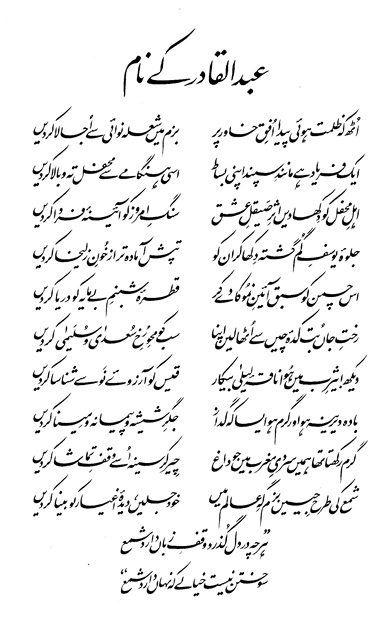 عبدالقادر کے نام
اُٹھ کہ ظلمت ہوئی پیدا اُفقِ خاور پر بزم میں شعلہ نوائی سے اُجالا کر دیں
ایک فریاد ہے مانندِ سپند اپنی بساط اسی ہنگامے سے محفل تہ و بالا کر دیں
اہلِ محفل کو دکھا دیں اثرِ صیقلِ عشق سنگِ امروز کو آئینۂ فردا کر دیں
جلوۂ یوسفِ گم گشتہ دکھا کر ان کو تپش آمادہ تر از خونِ زلیخا کر دیں
اس چمن کو سبق آئینِ نمُو کا دے کر قطرۂ شبنمِ بے مایہ کو دریا کر دیں
رختِ جاں بُت کدۂ چیں سے اُٹھا لیں اپنا سب کو محوِ رُخِ سُعدیٰ و سُلیمیٰ کر دیں
دیکھ! یثرب میں ہُوا ناقۂ لیلیٰ بیکار قیس کو آرزوئے نَو سے شناسا کر دیں
بادہ دیرینہ ہو اور گرم ہو ایسا کہ گداز جگرِ شیشہ و پیمانہ و مینا کر دیں
گرم رکھتا تھا ہمیں سردیِ مغرب میں جو داغ چیر کر سینہ اُسے وقفِ تماشا کر دیں
شمع کی طرح جییں بزم گہِ عالم میں خود جلیں، دیدۂ اغیار کو بینا کر دیں
”ہر چہ در دل گذرد وقفِ زباں دارد شمع
سوختن نیست خیالے کہ نہاں دارد شمع“